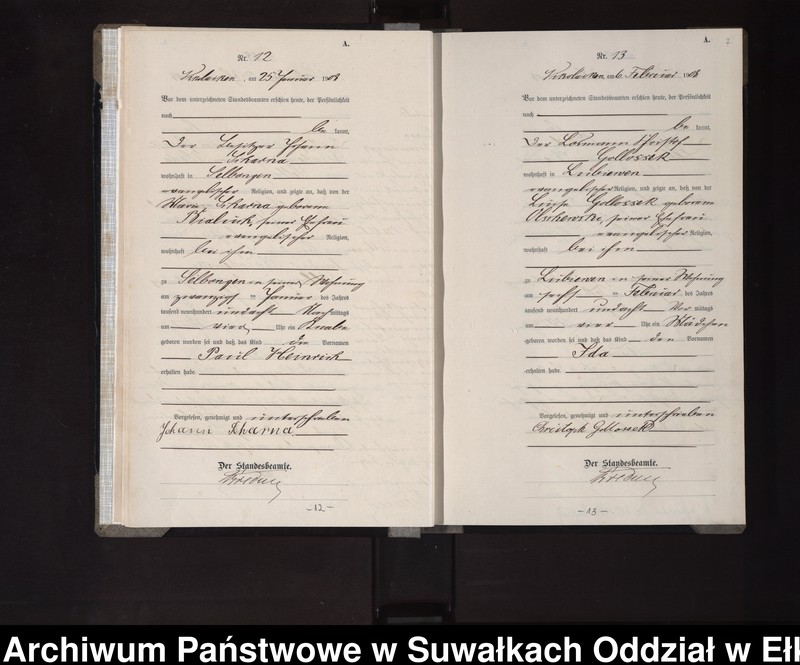 A.
Nr. 12
am 25 Januar 1908
Vor dem unterzeichneten Standesbeamten erschien heute, der Persönlichkeit
nach
be kannt,
Der Besitzer Johann
Skarna
wohnhaft in Selbongen
evangelischer Religion, und zeigte an, daß von der
Marie Skarna geborenen
seiner Ehefrau
evangelischer Religion,
wohnhaft bei ihm
zu Selbongen in seiner Wohnung
am zwanzigsten Januar des Jahres
tausend neunhundert und acht Nachmittags
um vier Uhr ein Knabe
geboren worden sei und daß das Kind die Vornamen
Paul Heinrich
erhalten habe
Vorgelesen, genehmigt und unterschrieben
Johann Skarna
Der Standesbeamte.
-12-
A.
2
Nr. 13
am 6 Februar 1908
Vor dem unterzeichneten Standesbeamten erschien heute, der Persönlichkeit
nach
be kannt,
Der Losmann Christof
Gollossek
wohnhaft in Lubiewen
evangelischer Religion, und zeigte an, daß von der
Luise Gollossek geborenen
seiner Ehefrau
evangelischer Religion,
wohnhaft bei ihm
zu Lubiewen in seiner Wohnung
am Februar des Jahres
tausend neunhundert und acht Vormittags
um vier Uhr ein Mädchen
geboren worden sei und daß das Kind den Vornamen
Ida
erhalten habe
Vorgelesen, genehmigt und unterschrieben
Christoph Gollossek
Der Standesbeamte.
-13-
Archiwum Państwowe w Suwałkach Oddział w Ełk